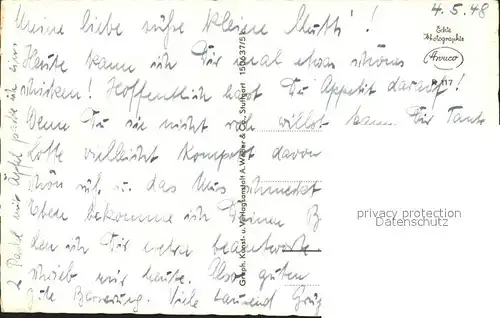 4.5.48
Meine liebe süße kleine Mutti!
Heute kann ich Dir mal etwas schönes
schicken! Hoffentlich hast Du Appetit darauf!
Wenn Du sie nicht roh willst kann Dir Tante
Lotte vielleicht Kompott davon
das Mus schmeckt
Eben bekomme ich Deinen B
den ich Dir extra beantworte
schrieb mir heute. Also guten
gute Besserung. Viele tausend Grüß
2 Äpfel
Echte
Photographie
R 117
Graph. Kunst- u. Verlagsanstalt A. Weber & Co., Stuttgart 150637/5
privacy protection
Datenschutz